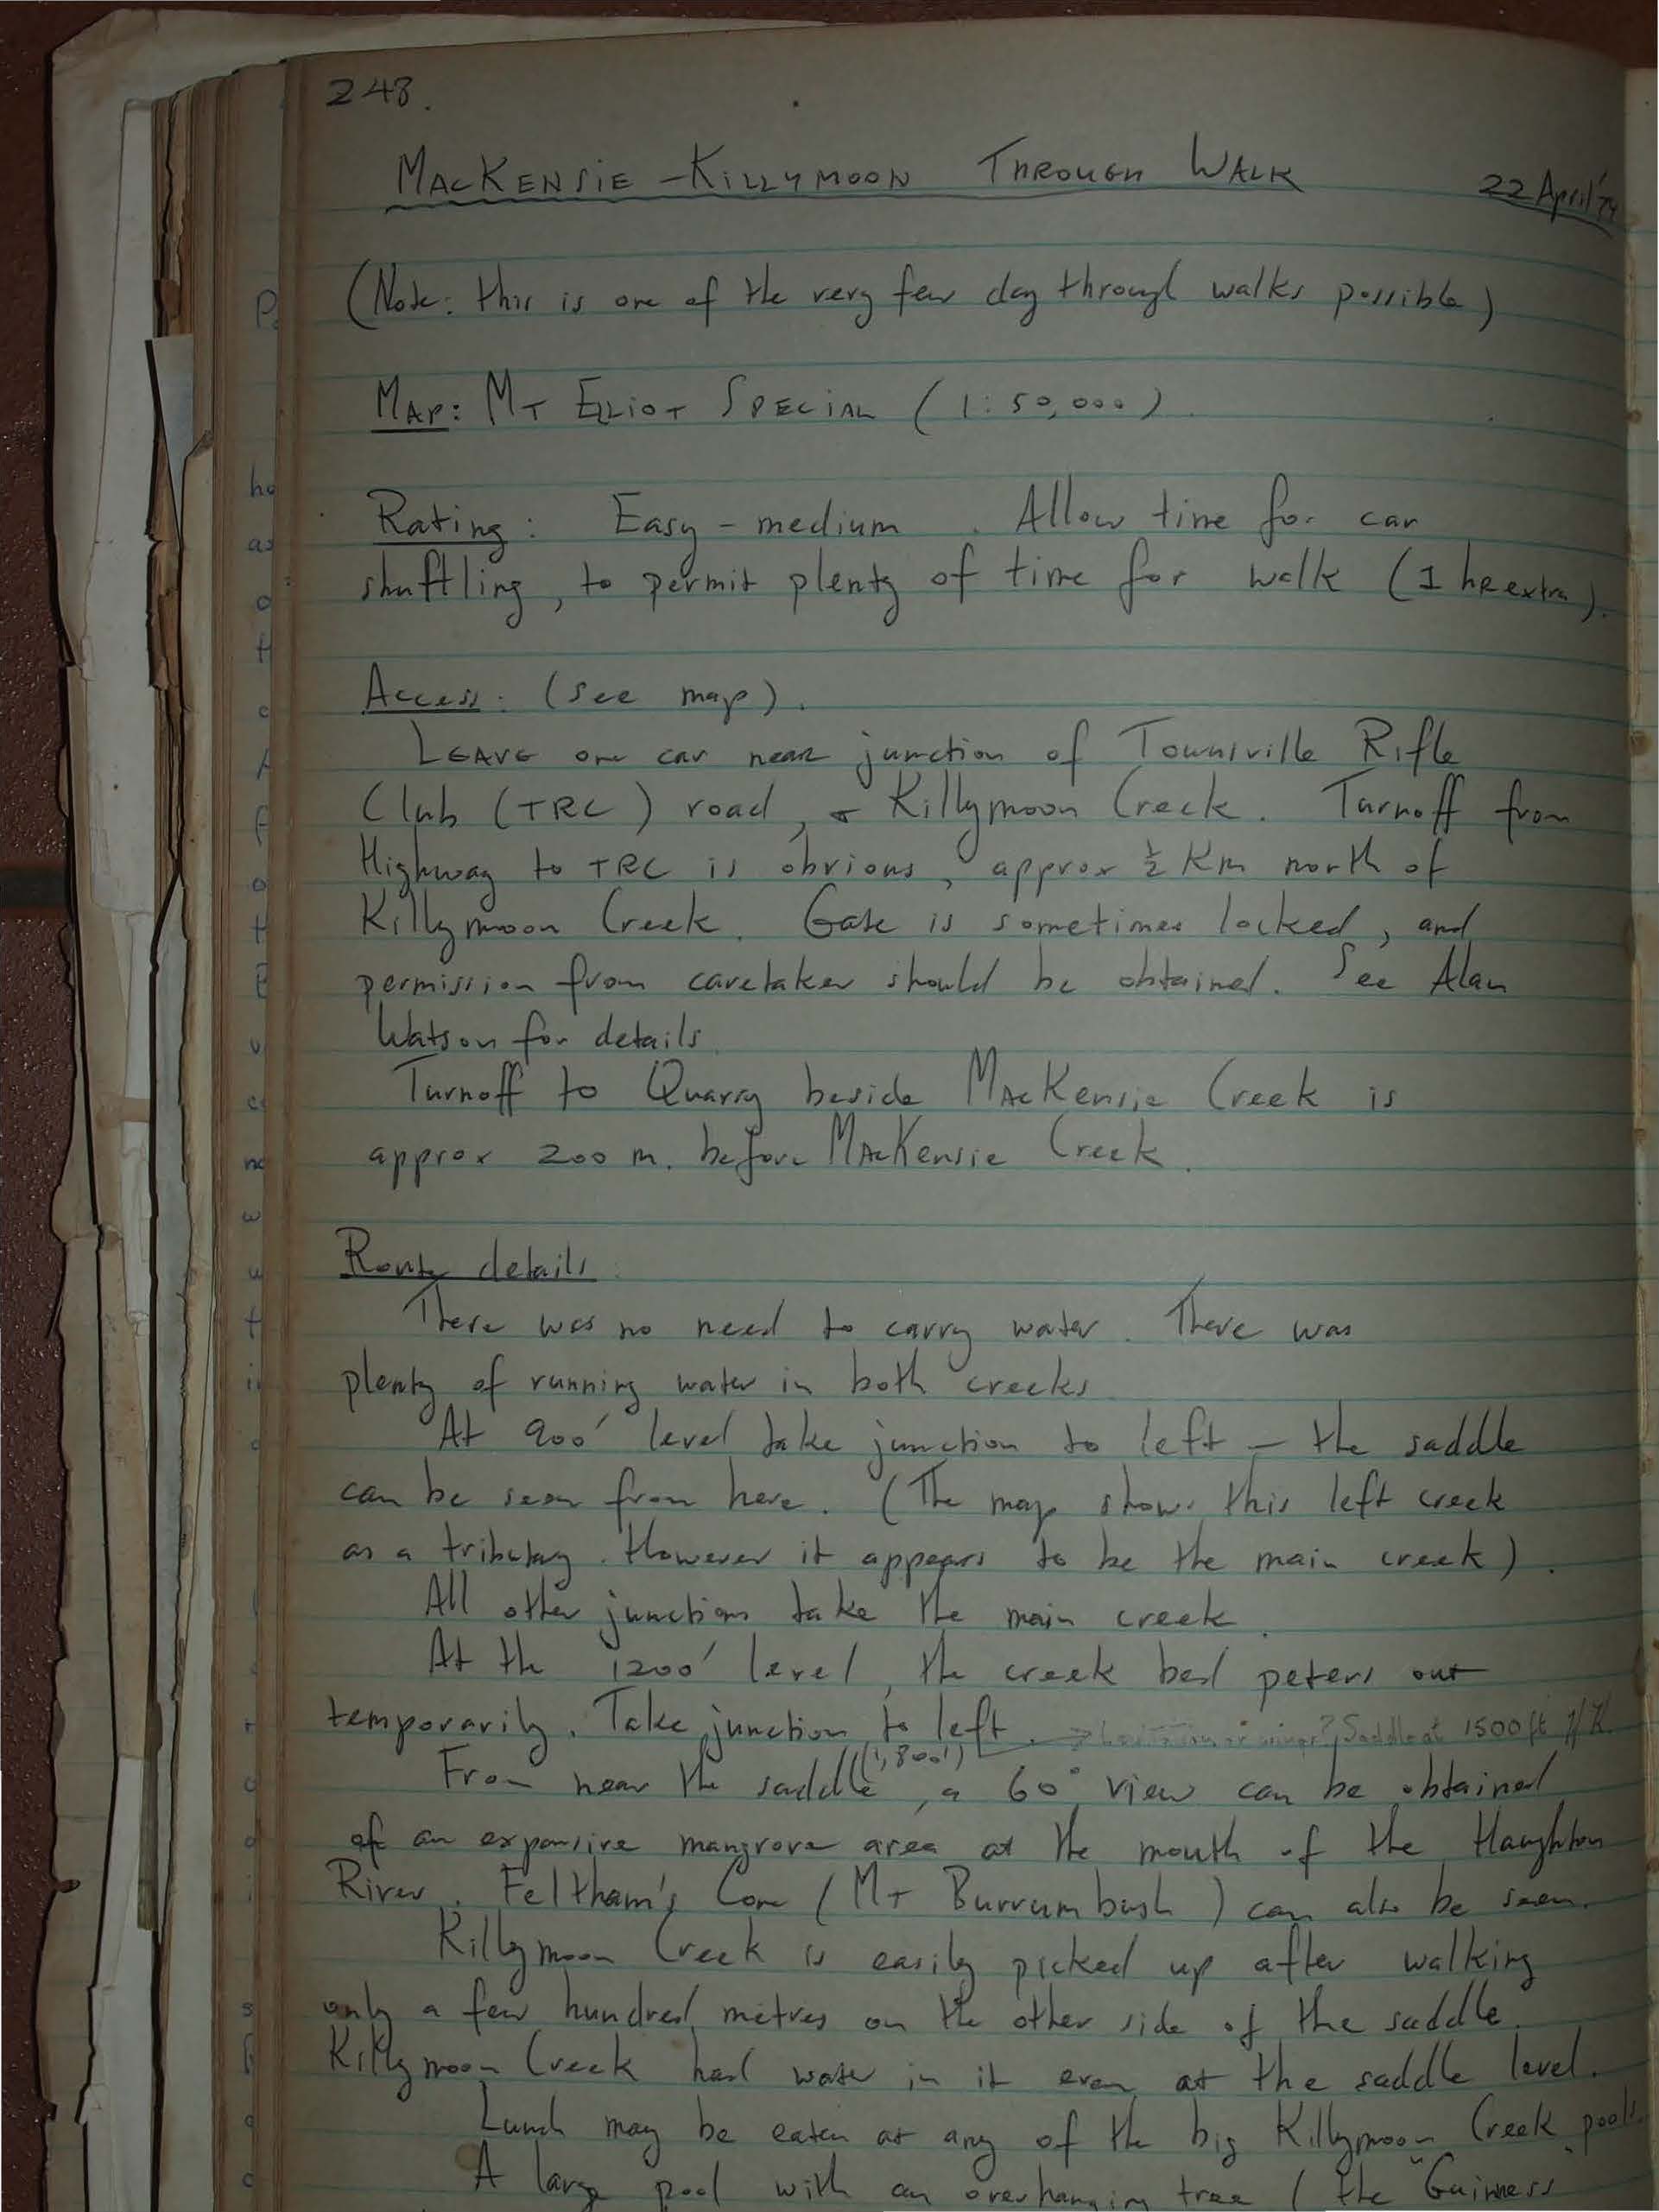 248.
MACKENSIE - KILLYMOON THROUGH WALK
22 April '74
(Note: this is one of the very few day through walks possible)
MAP: MT ELLIOT SPECIAL (1:50,000).
Rating: Easy - medium. Allow time for car
shuftling, to permit plenty of time for walk (1 hr extra).
Access: (see map).
LEAVE one car near junction of Townsville Rifle
Club (TRC) road, & Killymoon Creek. Turnoff from
Highway to TRC is obvious, approx ½ Km north of
Killymoon Creek. Gate is sometimes locked, and
permission from caretaker should be obtained. See Alan
Watson for details.
Turnoff to Quarry beside MacKensie Creek is
approx 200 m. before MacKensie Creek.
Route details:
There was no need to carry water. There was
plenty of running water in both creeks.
At 900' level take junction to left - the saddle
can be seen from here. (The map shows this left creek
as a tributary. However it appears to be the main creek).
All other junctions take the main creek.
At the 1200' level, the creek bed peters out
temporarily. Take junction to left. → ? Saddle at 1500 ft
From near the saddle (1,800'), a 60° view can be obtained
of an expansive mangrove area at the mouth of the Haughton
River. Feltham's Cone (Mt Burrumbush) can also be seen.
Killymoon Creek is easily picked up after walking
only a few hundred metres on the other side of the saddle.
Killymoon Creek had water in it even at the saddle level.
Lunch may be eaten at any of the big Killymoon Creek pools.
A large pool with an overhanging tree (the "Guinness